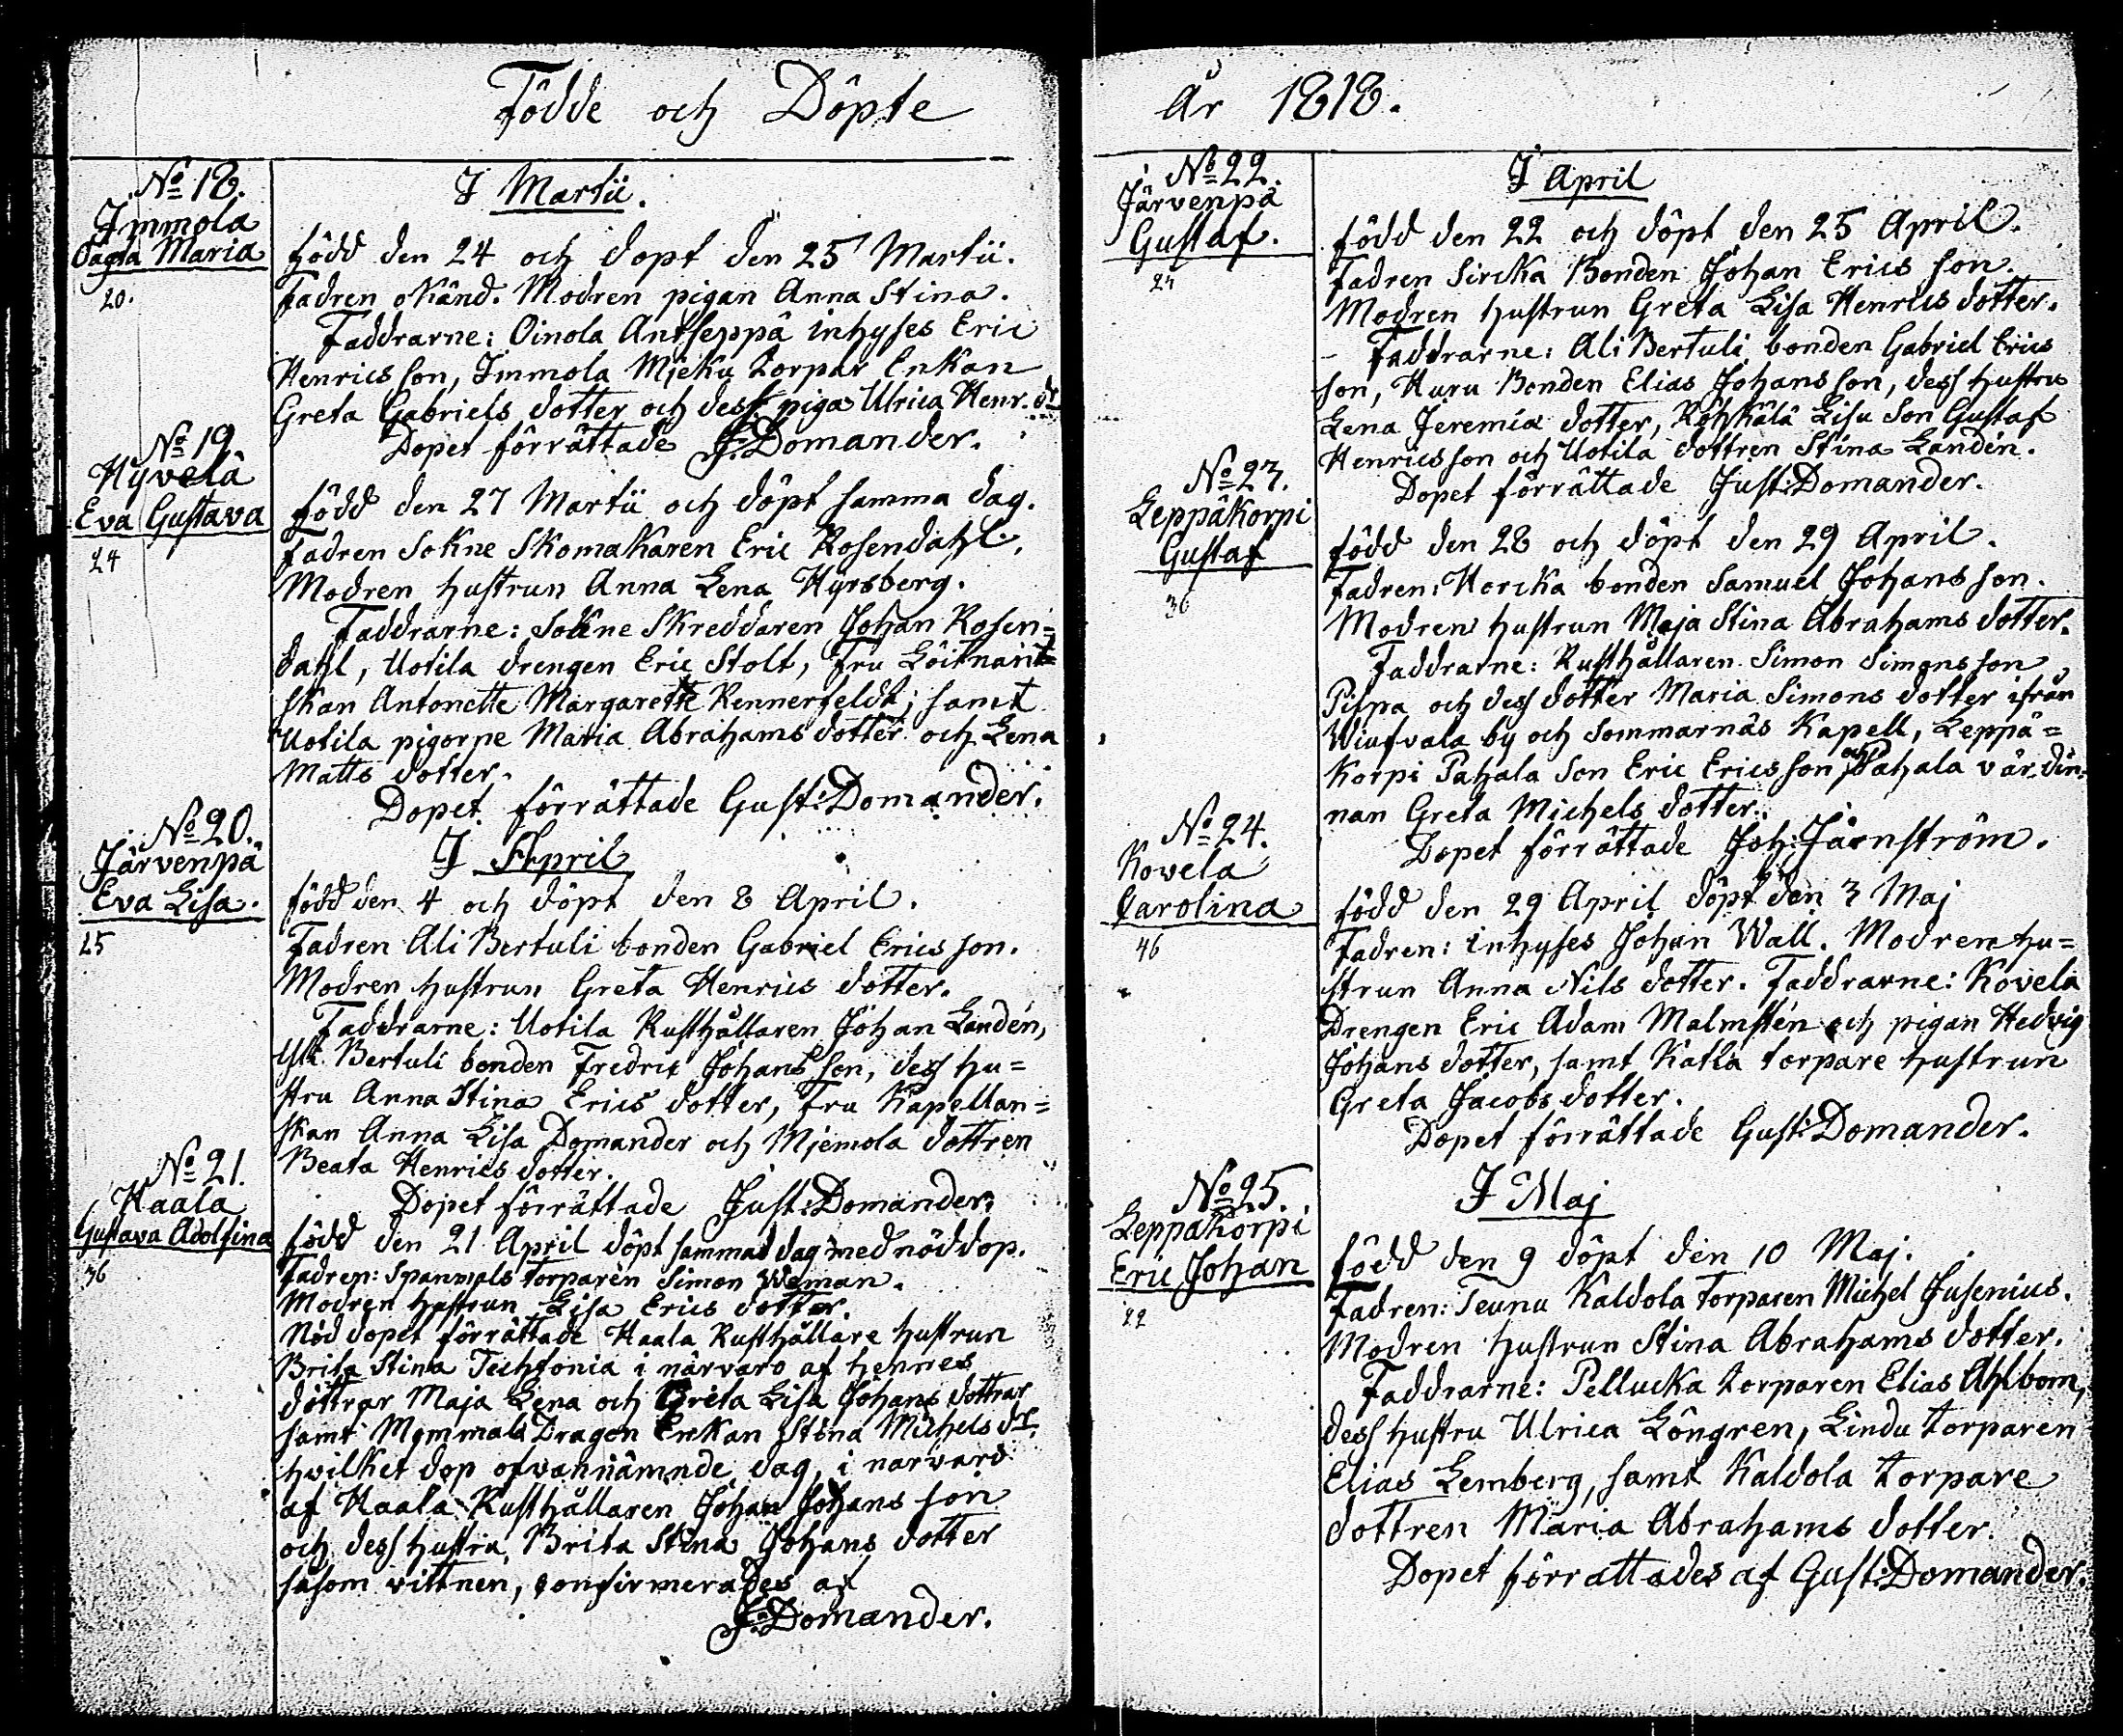 Födde och Döpte
No 18.
Immola
Dagta Maria
20.
I Martii.
född den 24 och döpt den 25 Martii.
Fadren okänd. Modren pigan Anna Stina.
Faddrarne: Oinola Antseppä inhyses Eric
Henrics son, Immola Mjeku torpar Enkan
Greta Gabriels dotter och dess piga Ulrica Henr. dr
Dopet förrättade G. Domander.
No 19.
Hyvelä
Eva Gustava
24
född den 27 Martii och döpt samma dag.
Fadren Sokne Skomakaren Eric Rosendahl.
Modren hustrun Anna Lena Hyrsberg.
Faddrarne: Sokne Skreddaren Johan Rosen=
dahl, Uotila drengen Eric Stolt, Fru Löitnant=
skan Antonette Margarette Rennerfeldt; samt
Uotila pigorne Maria Abrahams dotter och Lena
Matts dotter.
Dopet förrättade Gust: Domander.
No 20.
Järvenpä
Eva Lisa.
25
I April
född den 4 och döpt den 8 April.
Fadren Ali Bertuli bonden Gabriel Erics son.
Modren hustrun Greta Henrics dotter.
Faddrarne: Uotila Rusthållaren Johan Landén,
Yli Bertuli bonden Fredric Johans son, dess hu=
stru Anna Stina Erics dotter, Fru Kapellan=
skan Anna Lisa Domander och Mjemola dottren
Beata Henrics dotter.
Dopet förrättade Gust: Domander.
No 21.
Haala
Gustava Adolfina
36
född den 21 April döpt sammad dag med nöddop.
Fadren: Spanmols torparen Simon Weman.
Modren hustrun Lisa Erics dotter.
Nöd dopet förrättade Haala Rusthållare hustrun
Brita Stina Techtonia i närvaro af hennes
döttrar Maja Lena och Greta Lisa Johans dottrar
samt Mommala Dragon Enkan Stina Michels dr.
hvilket dop ofvannämnde dag, i närvaro
af Haala Rusthållaren Johan Johans son
och dess hustru Brita Stina Johans dotter
såsom vittnen, confirmerades af
G. Domander.
År 1818.
No 22.
Järvenpä
Gustaf.
24
I April
född den 22 och döpt den 25 April.
Fadren Sircka Bonden Johan Erics son.
Modren hustrun Greta Lisa Henrics dotter.
Faddrarne: Ali Bertuli bonden Gabriel Erics
son, Huru Bonden Elias Johans son, dess hustru
Lena Jeremiæ dotter, Kohkälä Lisu Son Gustaf
Henrics son och Uotila dottren Stina Landén.
Dopet förrättade Gust: Domander.
No 23.
Leppäkorpi
Gustaf
36
född den 28 och döpt den 29 April.
Fadren: Horcka bonden Samuel Johans son.
Modren hustrun Maja Stina Abrahams dotter.
Faddrarne: Rusthållaren Simon Simons son
Pilpa och dess dotter Maria Simons dotter ifrån
Wiufvala by och Sommarnäs Kapell, Leppä=
korpi Pahala Son Eric Erics son och Pahala värdin=
nan Greta Michels dotter.
Dopet förrättade Joh: Järnström.
No 24.
Kovela
Carolina
46
född den 29 April döpt den 3 Maj
Fadren: inhyses Johan Wall. Modren hu=
strun Anna Nils dotter. Faddrarne: Kovela
Drengen Eric Adam Malmstén och pigan Hedvig
Johans dotter, samt Katla torpare hustrun
Greta Jacobs dotter.
Dopet förrättade Gust: Domander.
No 25.
Leppäkorpi
Eric Johan
22
I Maj
född den 9 döpt den 10 Maj.
Fadren: Teunu Kaldola torparen Michel Jusenius.
Modren hustrun Stina Abrahams dotter.
Faddrarne: Pellucka torparen Elias Ahlbom,
dess hustru Ulrica Löngren, Lindu torparen
Elias Lemberg, samt Kaldola torpare
dottren Maria Abrahams dotter.
Dopet förrättades af Gust: Domander.